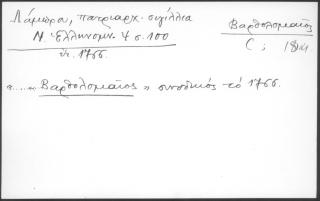 Λάμπρου, πατριαρχ. σιγίλλια
Βαρθολομαῖος
Ν. Ἑλληνομν. 4 σ. 100
ἔτ. 1766.
"..... Βαρθολομαῖος " συνοδικός τὸ 1766.